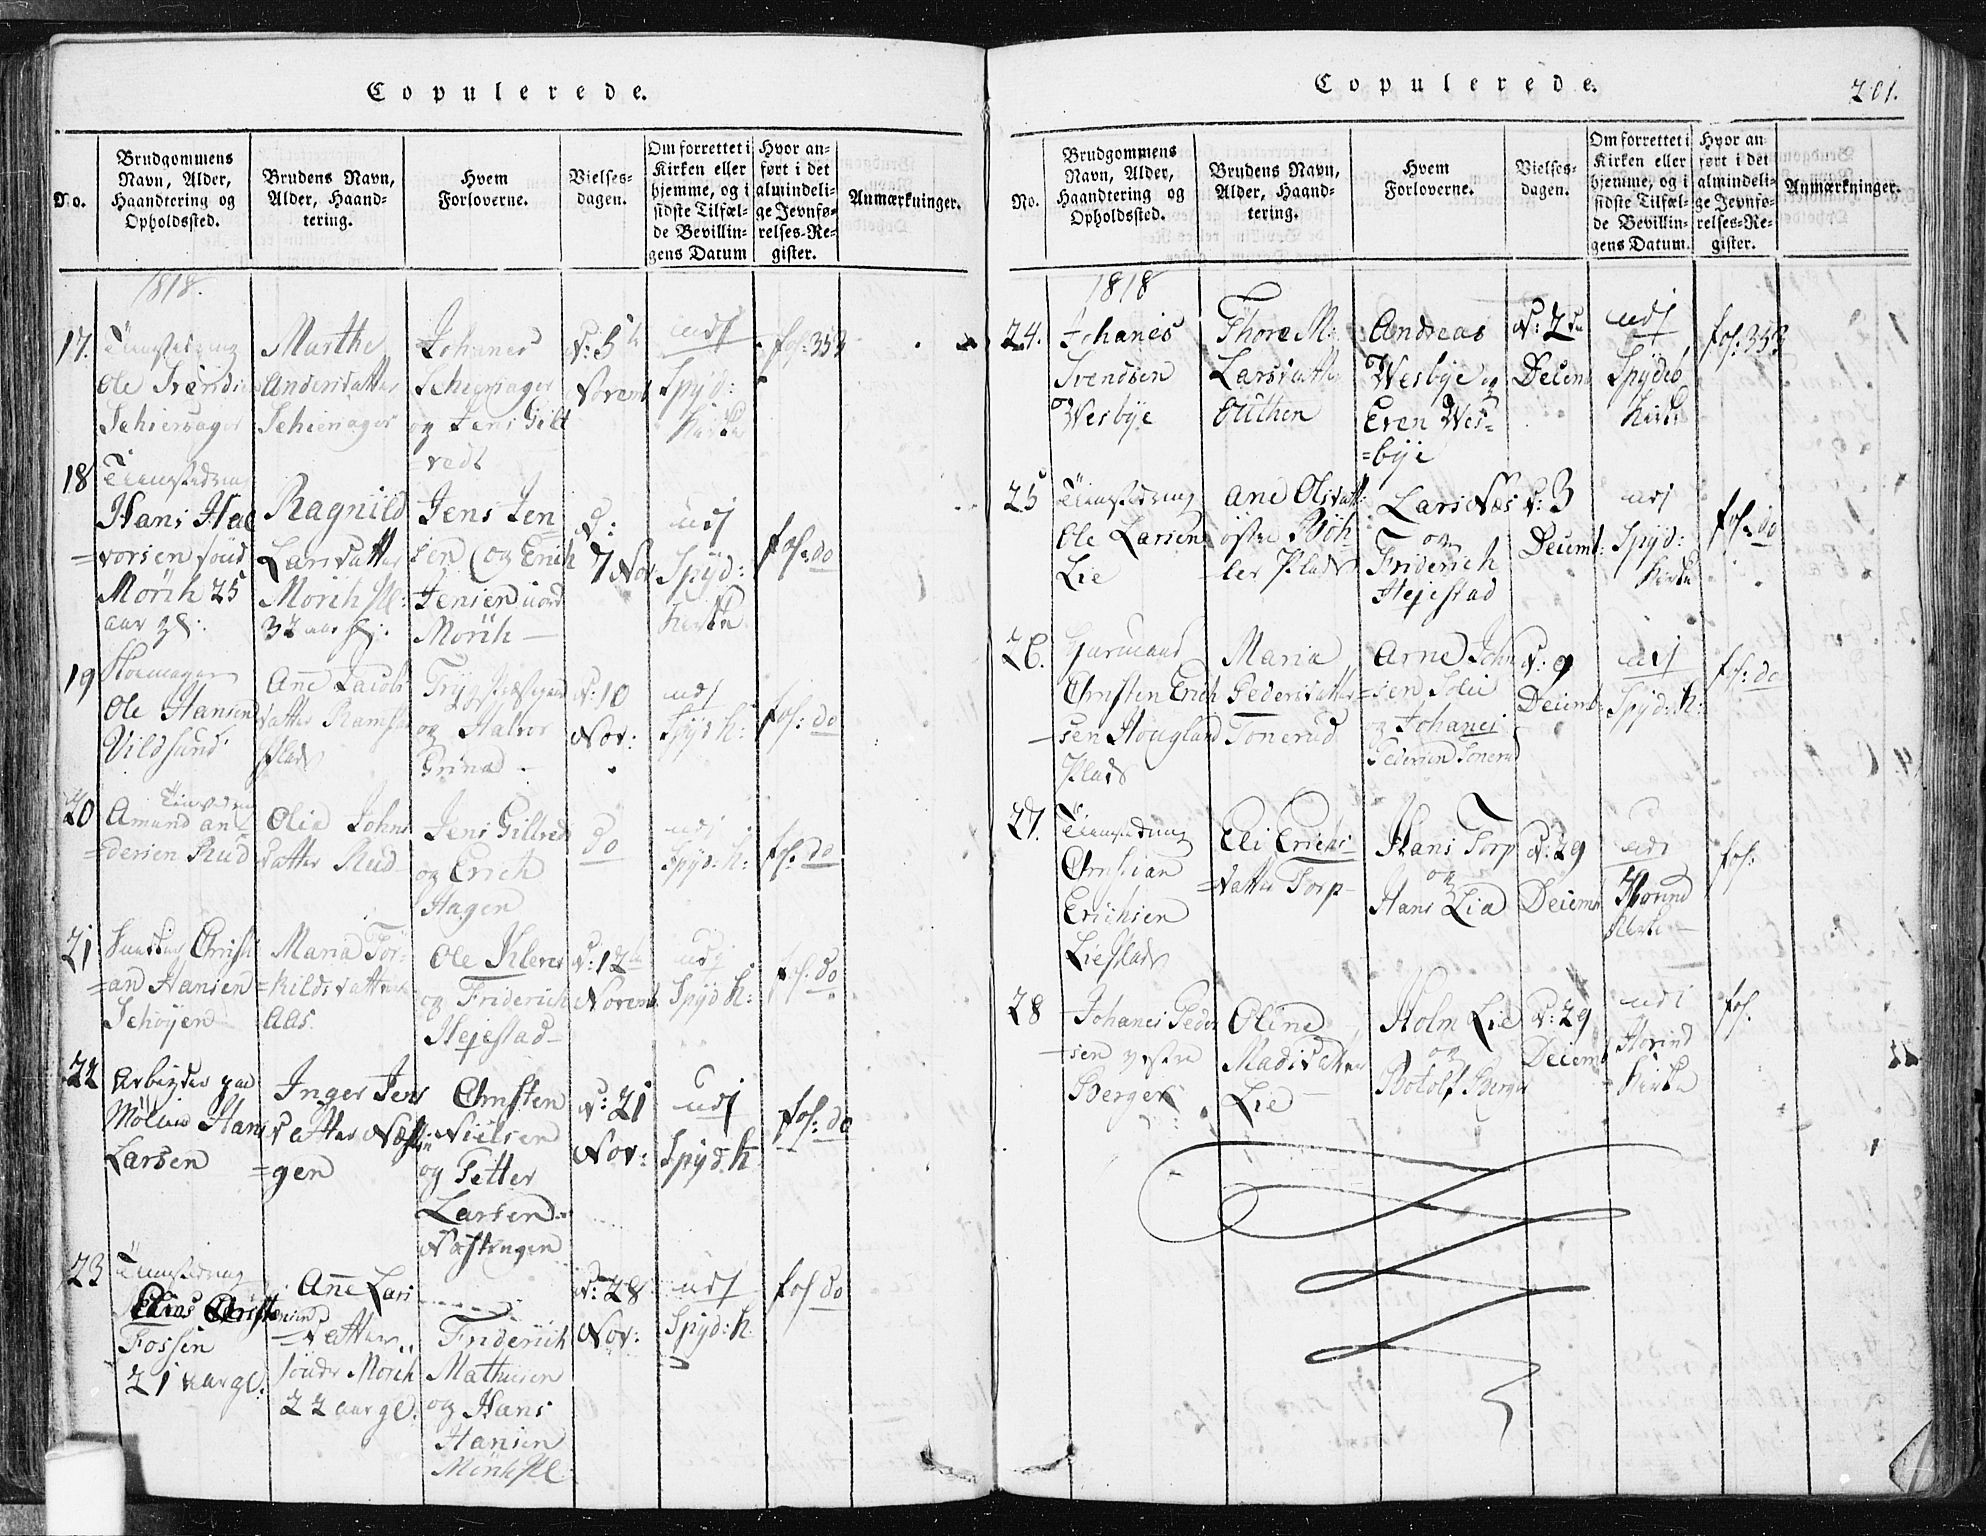 Copulerede.
No.
Brudgommens
Navn, Alder,
Haandtering og
Opholdssted.
Brudens Navn,
Alder, Haand-
tering.
Hvem
Forloverne.
Vielses-
dagen.
Om forrettet i
Kirken eller
hjemme, og i
sidste Tilfæl-
de Bevillin-
gens Datum
Hvor an-
ført i det
almindeli-
ge Jevnfø-
relses-Re-
gister.
Anmærkninger.
1818.
17.
Ole Svends
Schiersager
Marthe
Andersdatter
Schiersager
Johanes
Schiersager
og Jens Gilt
vedt
d: 5th
Novemb
udj
Spyd:
Kirke
fol: 353
18
Hans Hal
=vorsen sönd
Mörch 25
aar gl:
Ragnild
Larsdatter
Mörch Pl:
32 aar gl:
Jens Jen
sen og Erich
Jensen nord
Mörch
d:
7 Nov
udj
Spyd:
Kirke
fol: do
19
Ole Hansen
Vildsund
Ane Jacobs
datter
Plads
og Halvor
Grinad
d: 10
Nov:
udj
Spyd k:
fol: do
20
Amund an
=dersen Rud
Olia Johns
datter Rud
Jens Gilved
og Erich
Hagen
do
udj
Spyd: k:
fol: do
21
Christi
=an Hansen
Schöyen
Maria Tor
=kilds datter
Aas.
Ole Kleve
og Friderich
Hejestad
d: 12te
Novemb
udj
Spyd k:
fol: do
22
Arbeyder paa
Mölen Hans
Larsen
Inger Jens
datter Næstin
=gen
Christen
Nielsen
og Petter
Larsen
Næstingen
d: 21
Nov:
udj
Spyd: k
fol: do
23
Tienstedreng
Fossen
21 aar gl:
Ane Lars
datter
sönder Mörch
22 aar gl:
Friderich
Mathiesen
og Hans
Hansen
Mörch Pl
d: 28
Nov:
udj
Spyd: k
fol do
Copulerede.
201.
No.
Brudgommens
Navn, Alder,
Haandtering og
Opholdssted.
Brudens Navn,
Alder, Haand-
tering.
Hvem
Forloverne.
Vielses-
dagen.
Om forrettet i
Kirken eller
hjemme, og i
sidste Tilfæl-
de Bevillin-
gens Datum.
Hvor an-
ført i det
almindeli-
ge Jevnfø-
relses-Re-
gister.
Anmærkninger.
1818
24.
Johanes
Svendsen
Wesbye
Thore M:
Larsdatter
Outhen
Andreas
Wesbye og
Even Wes=
=bye
d: 2den
Decemb
udj
Spydeb
Kirke
fol: 353
25
Tienstedreng
Ole Larsen
Lie
Ane Olsdatt:
östre Böh
ler Plads
Lars Næs
og
Friderich
Hejestad
d: 3
Decemb:
udj
Spyd:
Kirke
fol: do
26.
Christen Erich
sen Hougland
Plads
Maria
Pedersdatter
Tonerud
Arne John
=sen Solie
og Johanes
Pedersen Tonerud
d: 9
Decemb:
udj
Spyd: k:
fol: do
27.
Tienstedreng
Christian
Erichsen
Lie Plads
Eli Erichs
=datter Torp
Hans Torp
og
Hans Lia
d: 29
Decemb
udj
Hovind
Kirke
fol:
28
Johanes Peder
=sen vestre
Berger
Oline
Madsdatter
Lie
Holm Lie
og
Botolf Berger
d: 29
Decemb
udj
Hovind
Kirke
fol.